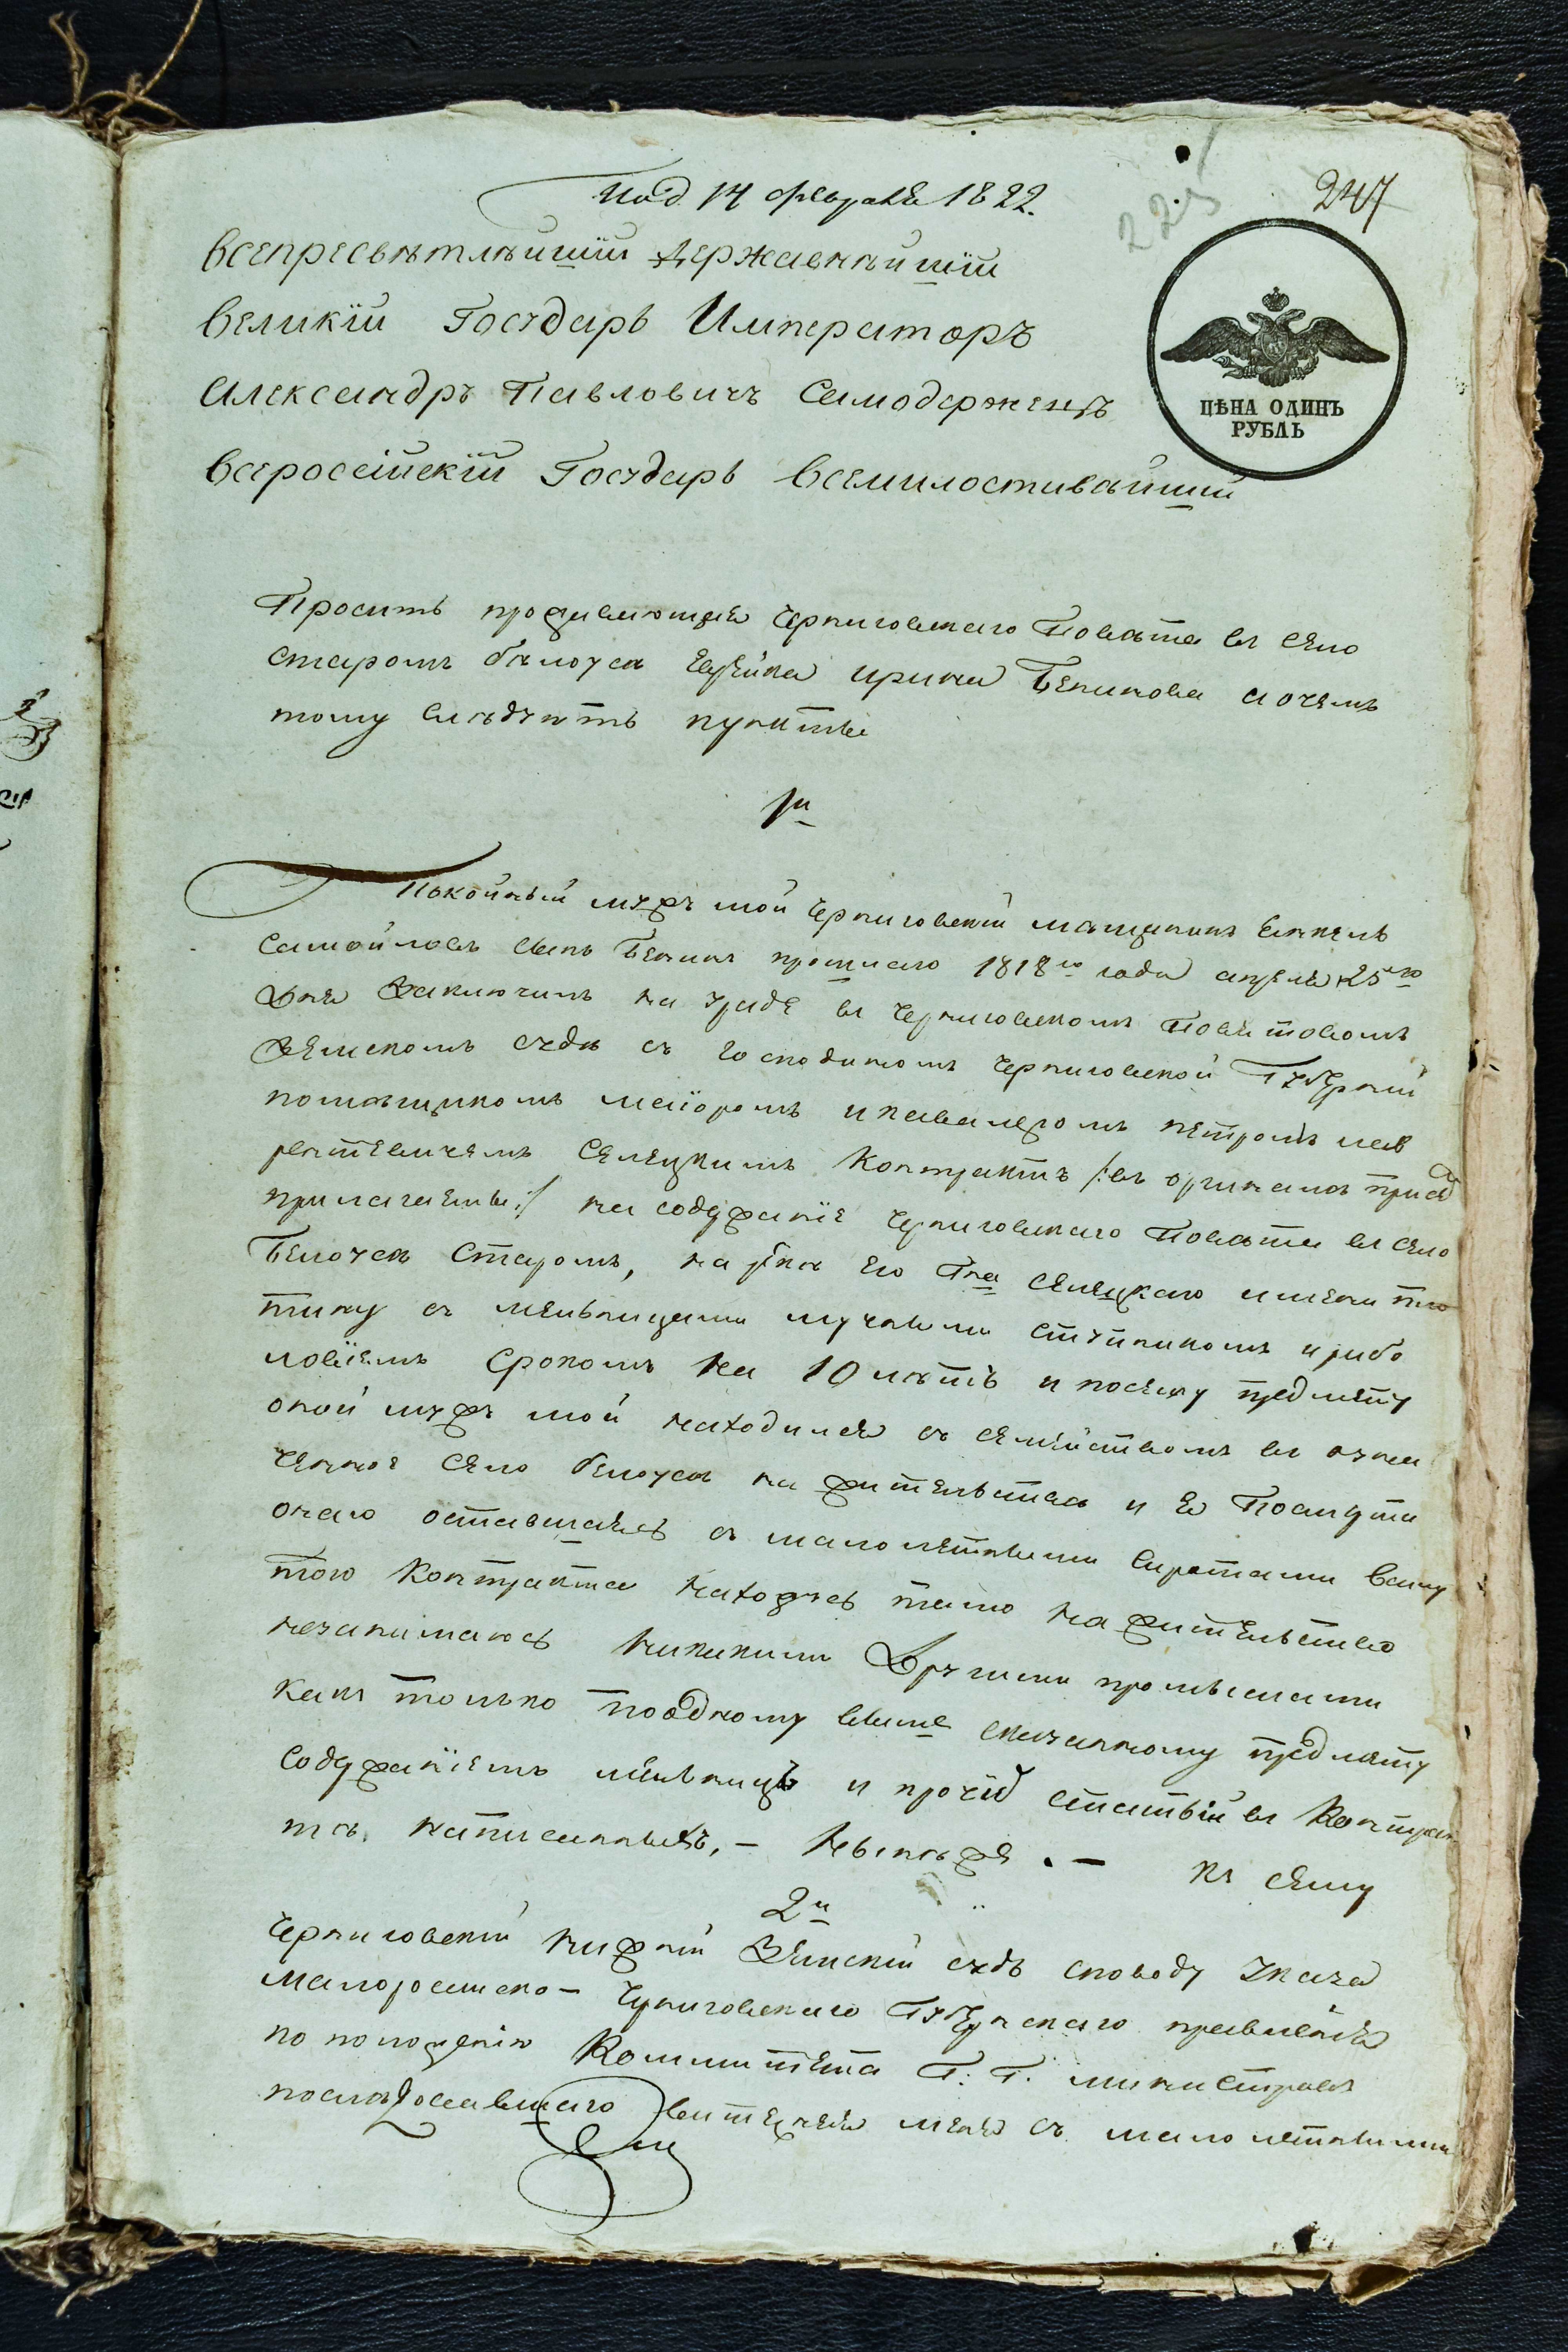 Под 14 февраля 1822.
247
225
Всепресвѣтлѣйшій Державнѣйшій
Великій Государь Императоръ
Александръ Павловичъ Самодержецъ
Всеросéійскій Государь Всемилостивѣйшій
ЦѢНА ОДИНЪ
РУБЛЬ
Проситъ проживающая Черниговскаго Повѣта въ селѣ
старомъ бѣлоусѣ еврейка Ирина Бенинова а о чемъ
тому слѣдуютъ пункты
1й
Покойный мужъ мой Черниговскій мѣщанинъ
Самойловъ сынъ Бенинъ прошлаго 1818го года апреля 25го
дня заключилъ на уряде въ Черниговскомъ Поветовомъ
Земскомъ судѣ съ господиномъ Черниговской Губерніи
помѣщикомъ маіоромъ и кавалеромъ петромъ лав
рентьевичемъ Селецкимъ Контрактъ /:въ оригиналѣ при семъ
прилагаемый:/ на содержаніе Черниговскаго Повѣта въ селѣ
Белоусѣ Старомъ, на рѣкѣ его Гна Селецкаго имении пло
тину съ мельницами мучными ступникомъ и рибо
ловіемъ срокомъ на 10 лѣтъ и посему предмету
оной мужъ мой находился съ семействомъ въ озна
ченное село белоусъ на жительствѣ и я По смерти
онаго оставшаясь съ малолетними сиротами
того Контракта находясь тамо на жительствѣ
незанимаюсь никакими Другими промыслами
какъ только по одному више сказанному предмету
содержаніемъ мѣльницъ и прочій статьи въ Контрак
тѣ написанныхъ, – Нынѣже . – къ сему
2й
Черниговскій нижній Земскій судъ споводу указа
Малоросійско – Черниговскаго Губернскаго правленія
по положенію Коммитета Г: Г. министровъ
послѣдовавшаго витесняя меня съ малолетними